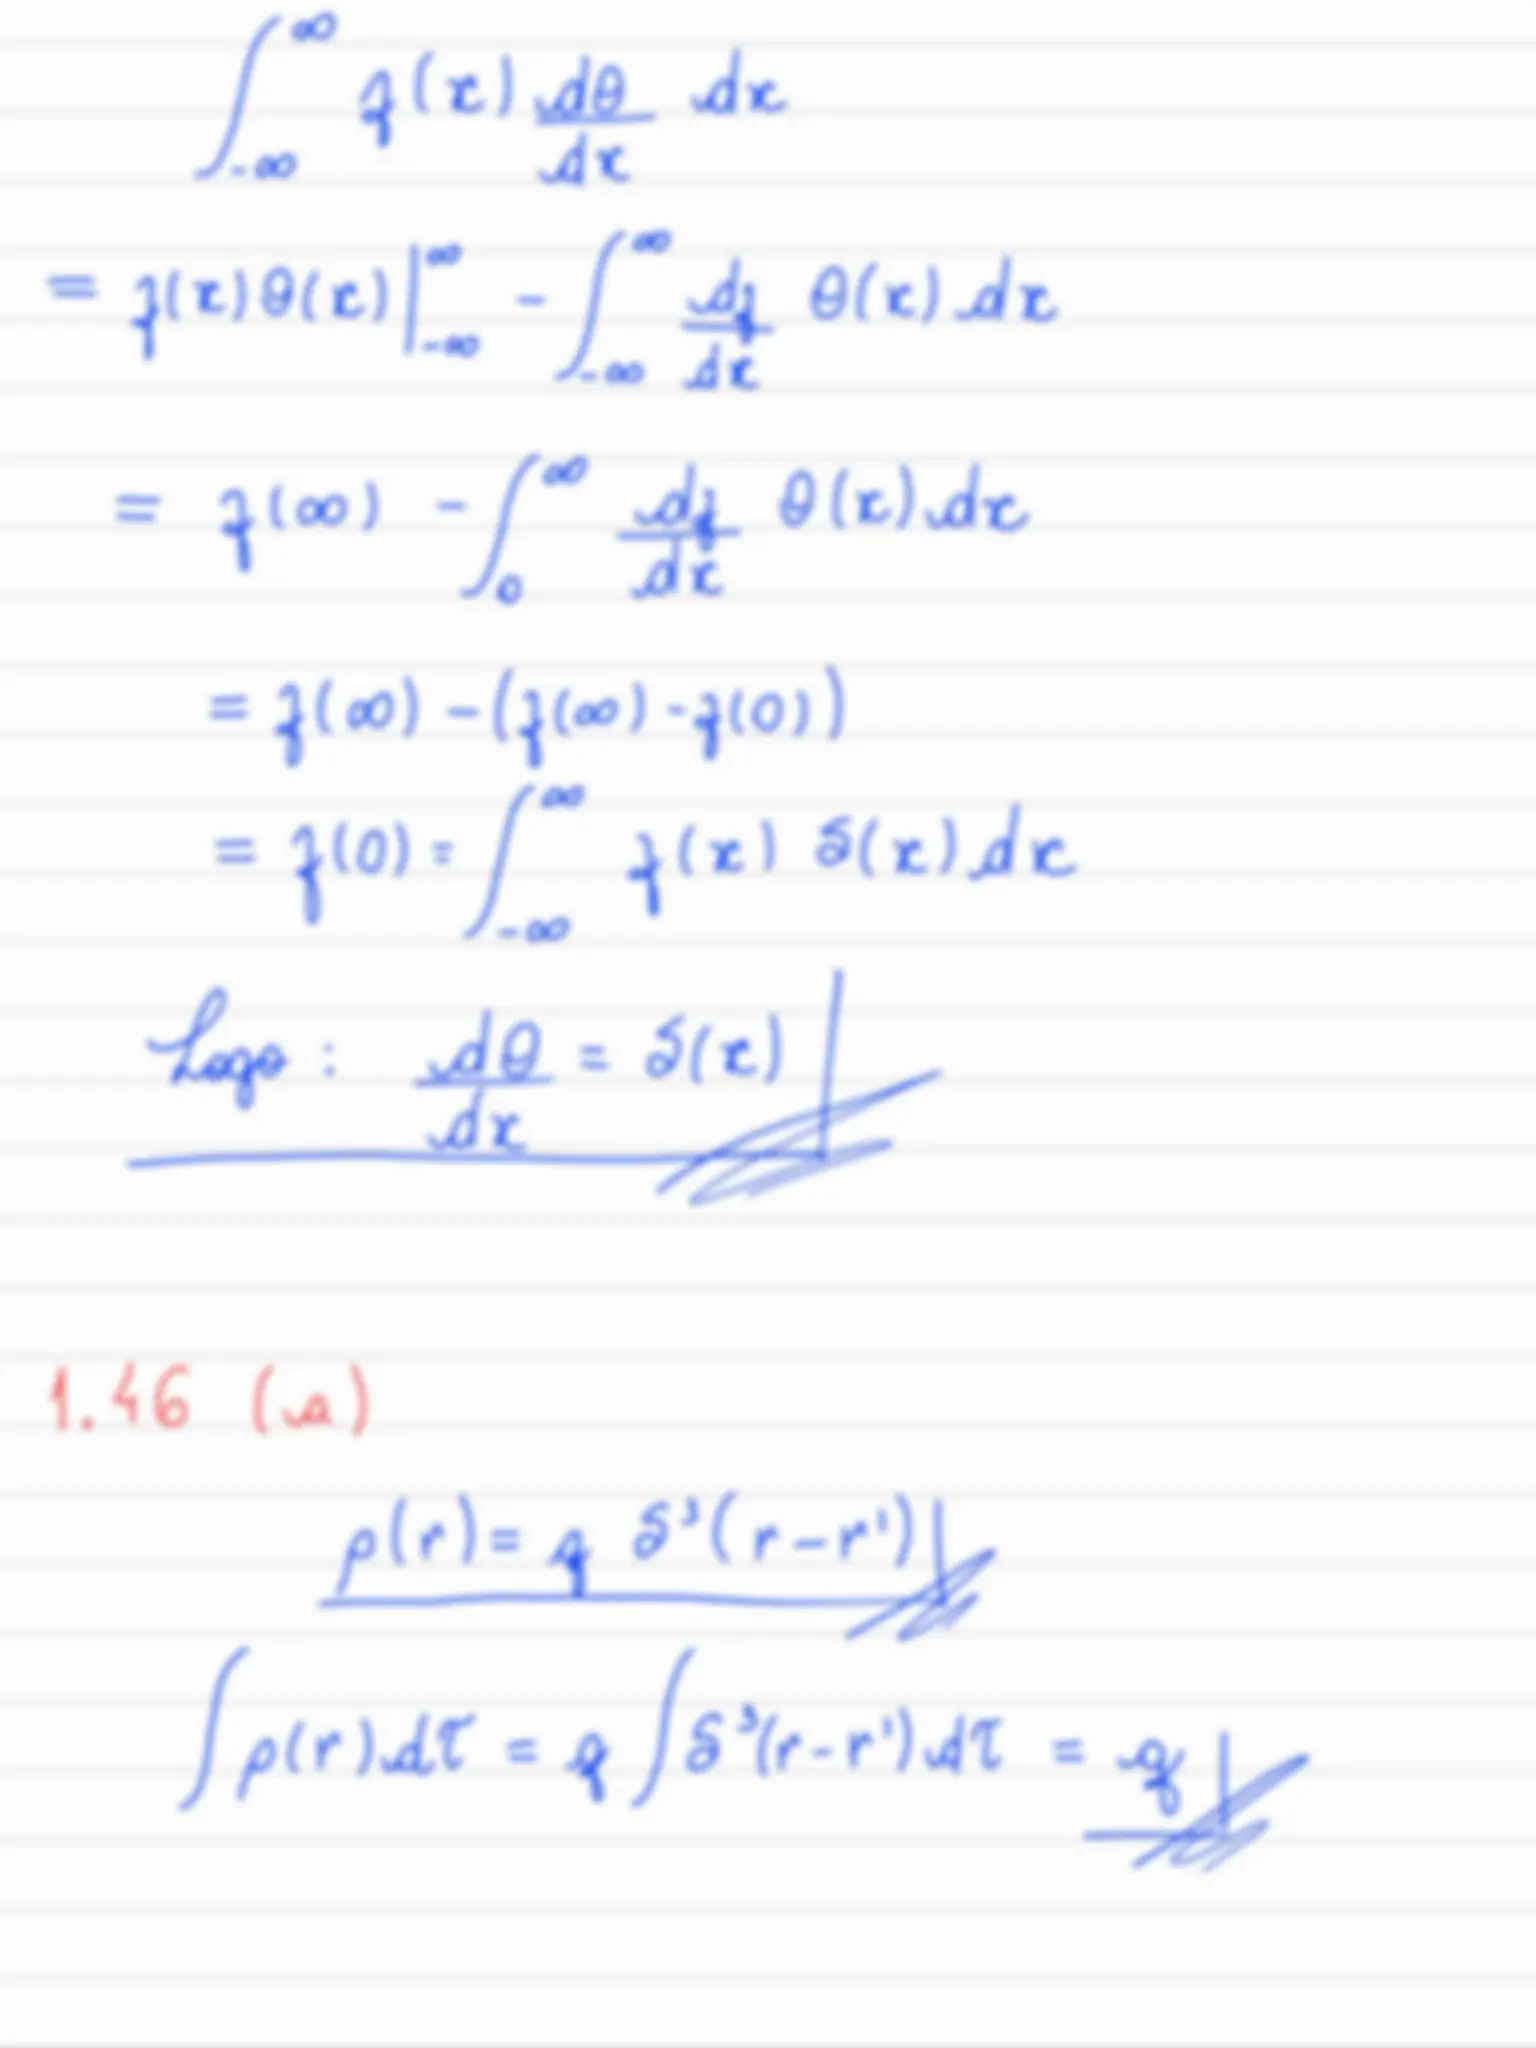 ∫_{-∞}^{∞} f(x) dθ/dx dx
= f(x)θ(x)|_{-∞}^{∞} - ∫_{-∞}^{∞} df/dx θ(x) dx
= f(∞) - ∫_{0}^{∞} df/dx θ(x) dx
= f(∞) - (f(∞) - f(0))
= f(0) = ∫_{-∞}^{∞} f(x) δ(x) dx
Logo : dθ/dx = δ(x)
1.46 (a)
ρ(r) = q δ³(r - r')
∫ρ(r)dτ = q∫δ³(r-r')dτ = q